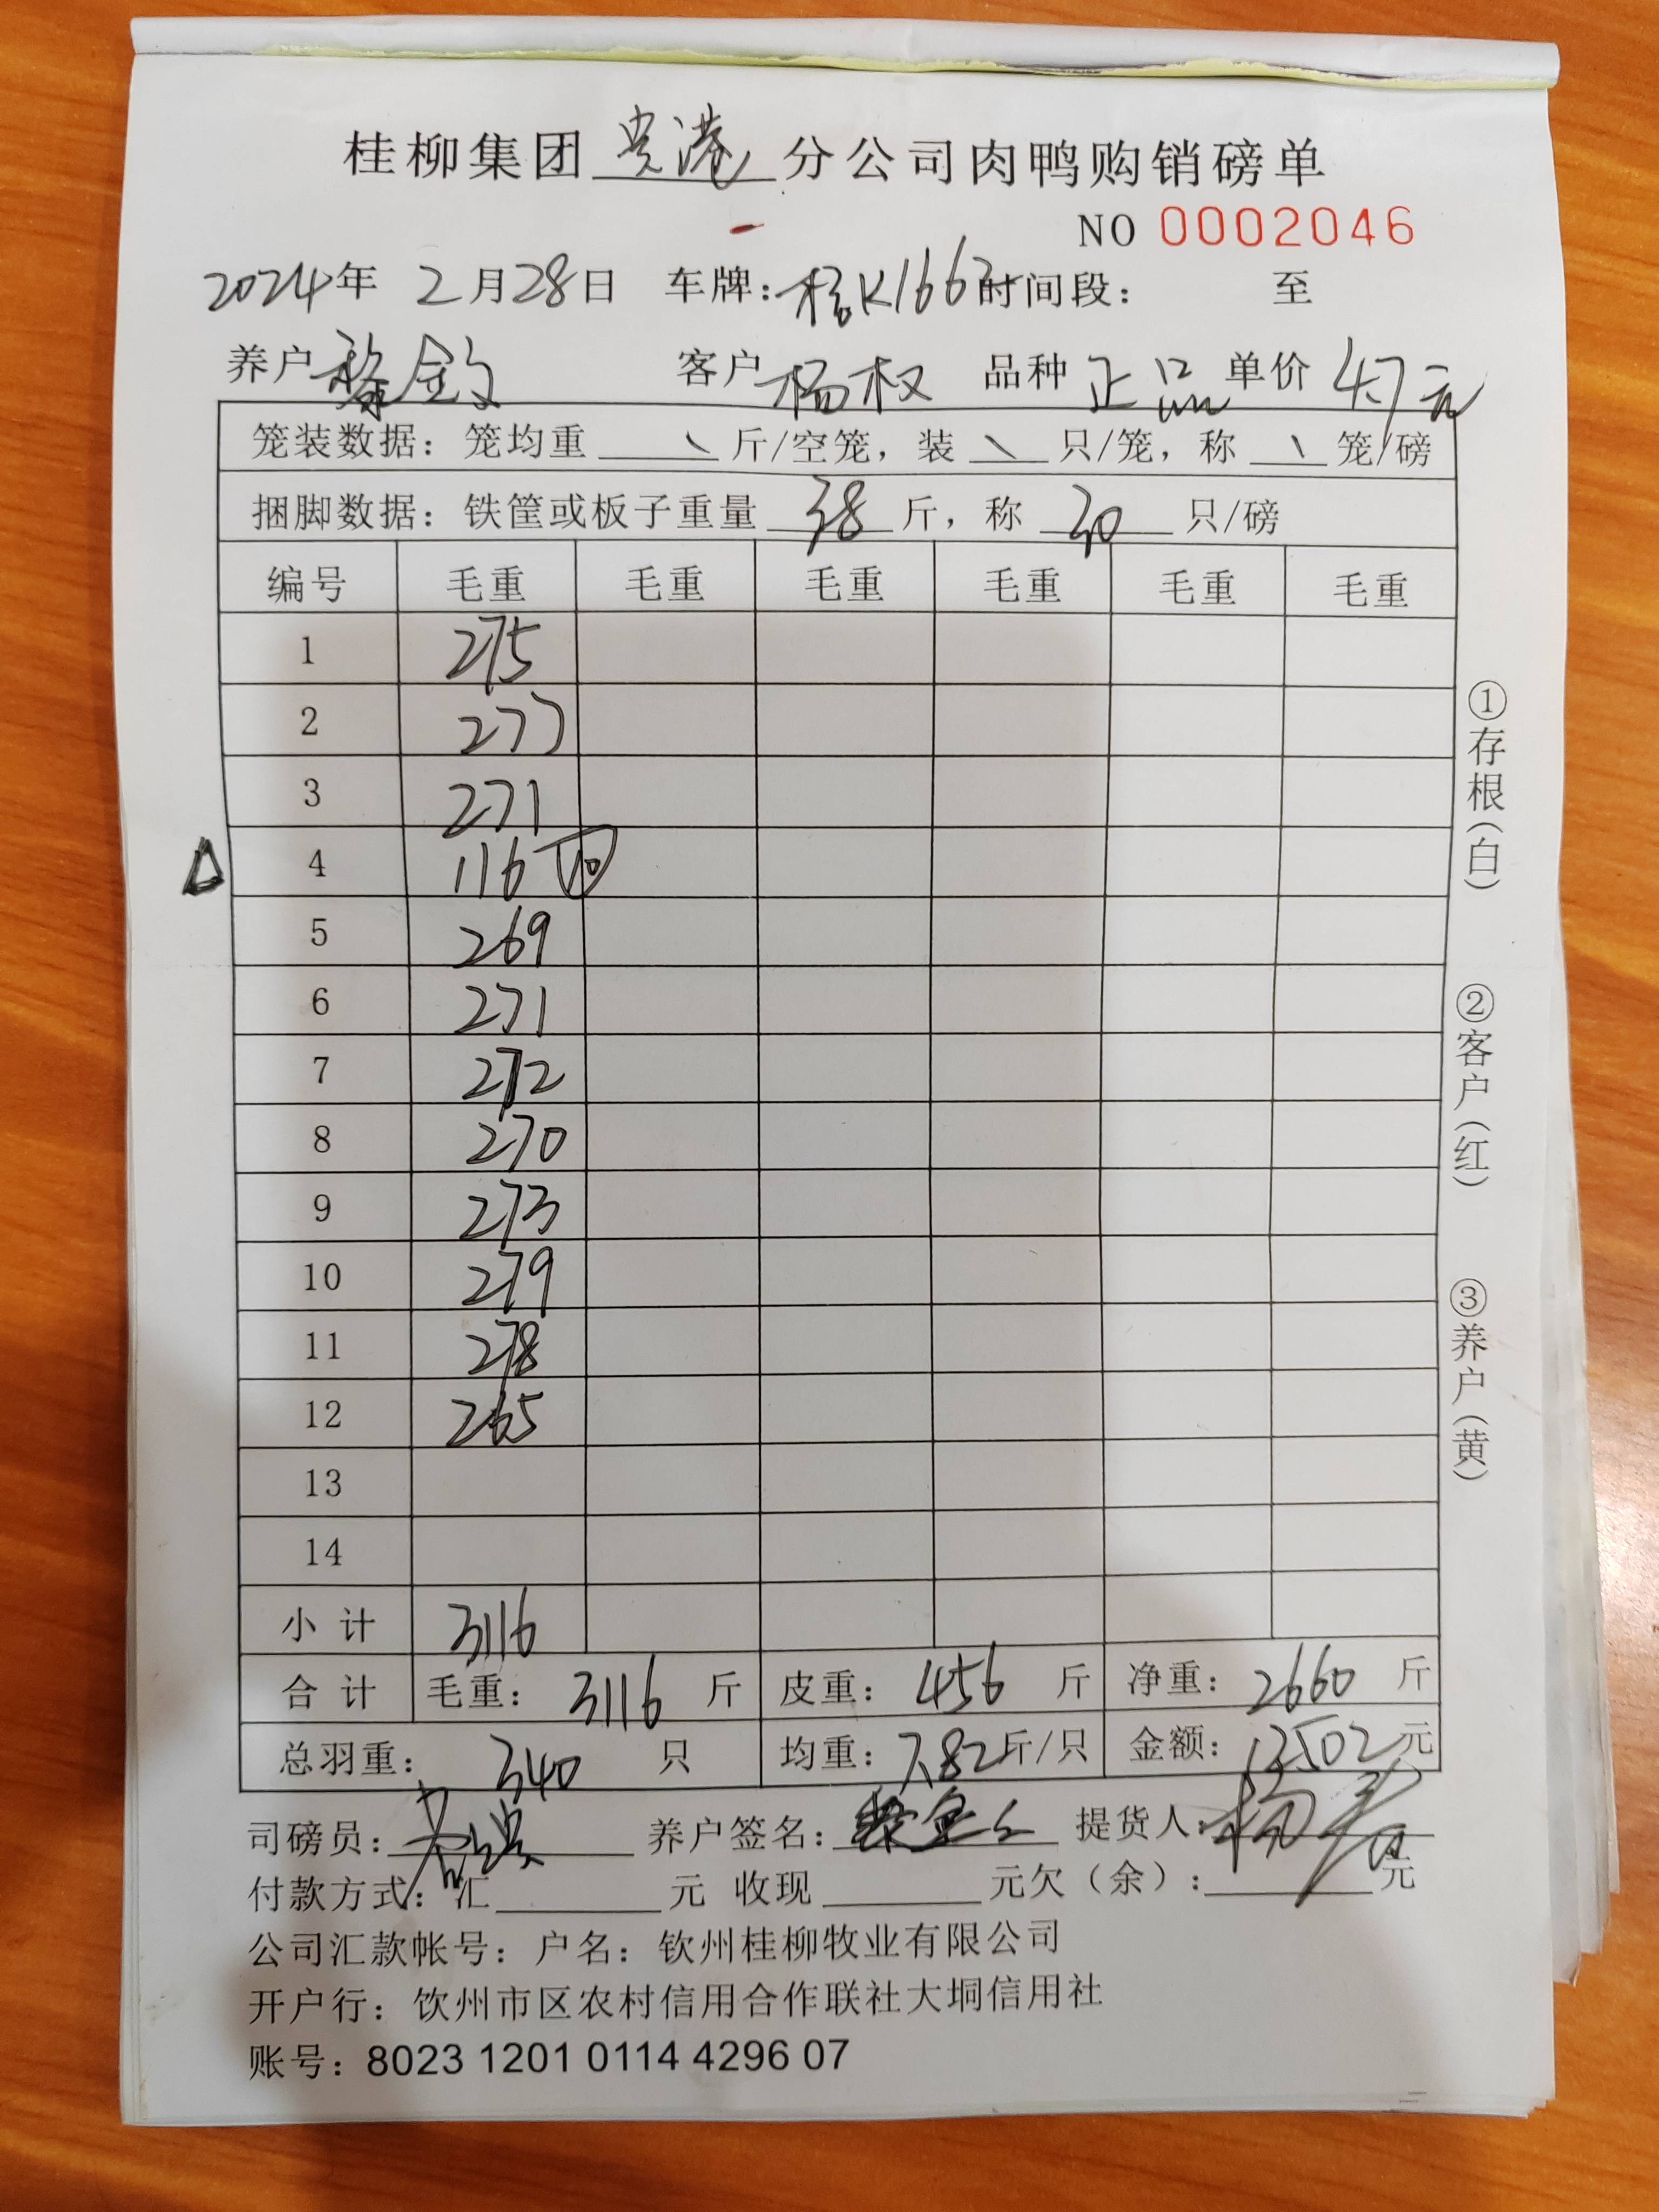 桂柳集团贵港分公司肉鸭购销磅单
NO 0002046
2024年 2月28日 车牌:桂K1662时间段: 至
养户黎钦 客户杨权 品种正品单价4.7元
笼装数据:笼均重 \ 斤/空笼,装 \ 只/笼,称 \ 笼/磅
捆脚数据:铁筐或板子重量 38 斤,称 30 只/磅
编号 毛重 毛重 毛重 毛重 毛重 毛重
1 275
2 277
3 271
4 116 10
5 269
6 271
7 272
8 270
9 273
10 279
11 278
12 265
13
14
小计 3116
合计 毛重:3116 斤 皮重:456 斤 净重:2660 斤
总羽重:340 只 均重:7.82斤/只 金额:12502元
司磅员: 养户签名: 提货人:杨
付款方式:汇 元 收现 元欠(余): 元
公司汇款帐号:户名:钦州桂柳牧业有限公司
开户行:饮州市区农村信用合作联社大垌信用社
账号:8023 1201 0114 4296 07
①存根(白)
②客户(红)
③养户(黄)